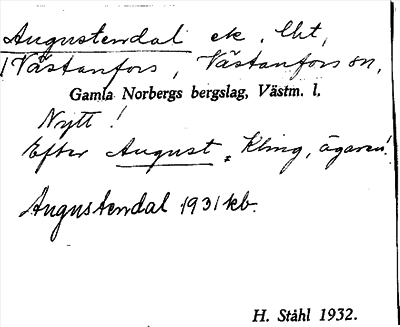 Augustendal ek, lht,
Västanfors, Västanfors sn,
Gamla Norbergs bergslag, Västm. l.
Nytt!
Efter August Kling, ägaren!
Augustendal 1931 kb.
H. Ståhl 1932.